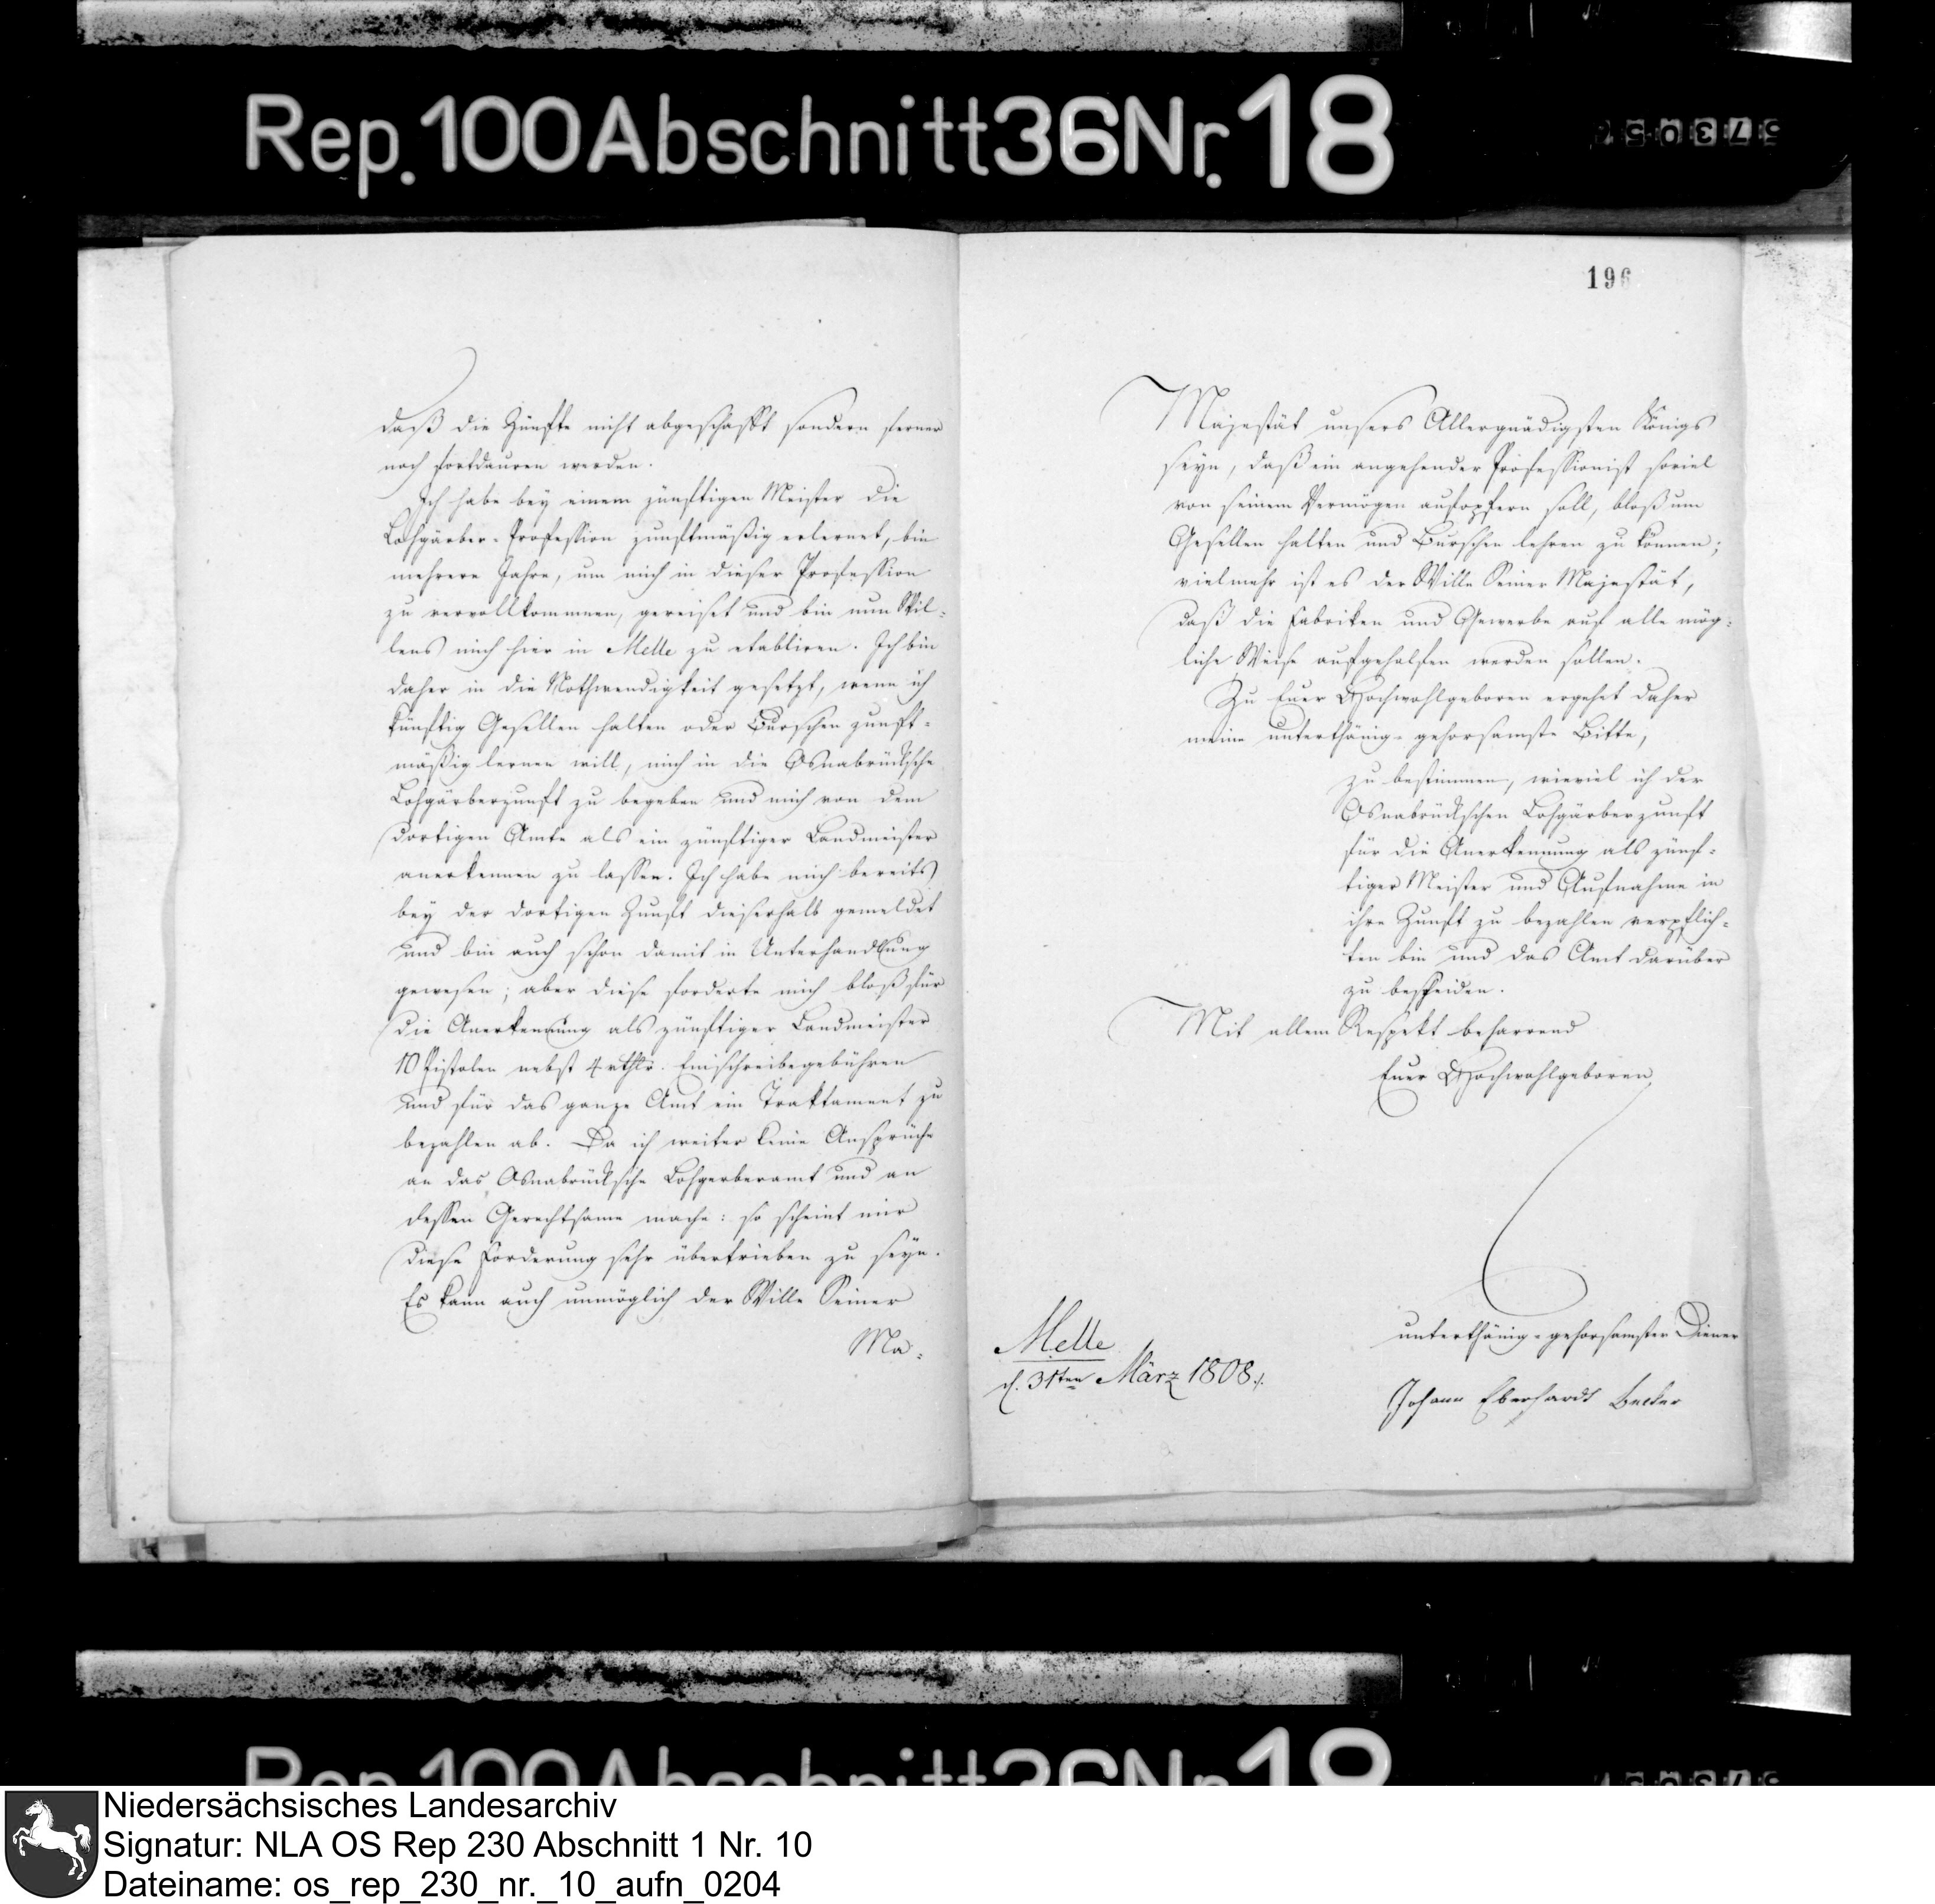 Rep. 100 Abschnitt 36 Nr. 18
196
daß die Zünfte nicht abgeschafft sondern ferner
noch fortdauren werden.
Ich habe bey einem zünftigen Meister die
Lohgärber-Profession zunftmäßig erlernet, bin
mehrere Jahre, um mich in dieser Profession
zu vervollkommnen, gereiset und bin nun Wil-
lens mich hier in Melle zu etabliren. Ich bin
daher in die Nothwendigkeit gesetzt, wenn ich
künftig Gesellen halten oder Burschen zunft-
mäßig lernen will, mich in die Osnabrücksche
Lohgärberzunft zu begeben und mich von dem
dortigen Amte als ein zünftiger Landmeister
anerkennen zu lassen. Ich habe mich bereits
bey der dortigen Zunft dieserhalb gemeldet
und bin auch schon damit in Unterhandlung
gewesen; aber diese forderte mich bloß für
die Anerkennung als zünftiger Landmeister
10 Pistolen nebst 4 rthlr. Einschreibegebühren
und für das ganze Amt ein Traktament zu
bezahlen ab. Da ich weiter keine Ansprüche
an das Osnabrücksche Lohgerberamt und an
dessen Gerechtsame mache: so scheint mir
diese Forderung sehr übertrieben zu seyn.
Es kann auch unmöglich der Wille Seiner
Ma-
Majestät unsers Allergnädigsten Königs
seyn, daß ein angehender Professionist soviel
von seinem Vermögen aufopfern soll, bloß um
Gesellen halten und Burschen lehren zu können;
vielmehr ist es der Wille Seiner Majestät,
daß die Fabriken und Gewerbe auf alle mög-
liche Weise aufgeholfen werden sollen.
Zu Euer Hochwohlgeboren ergehet daher
meine unterthänig-gehorsamste Bitte,
zu bestimmen, wieviel ich der
Osnabrückschen Lohgärberzunft
für die Anerkennung als zünf-
tiger Meister und Aufnahme in
ihre Zunft zu bezahlen verpflich-
ten bin und das Amt darüber
zu bescheiden.
Mit allem Respekt beharrend
Euer Hochwohlgeboren
unterthänig-gehorsamster Diener
Melle
d. 31ten März 1808.
Johann Eberhardt Becker
Rep. 100 Abschnitt 36 Nr. 18
Niedersächsisches Landesarchiv
Signatur: NLA OS Rep 230 Abschnitt 1 Nr. 10
Dateiname: os_rep_230_nr._10_aufn_0204